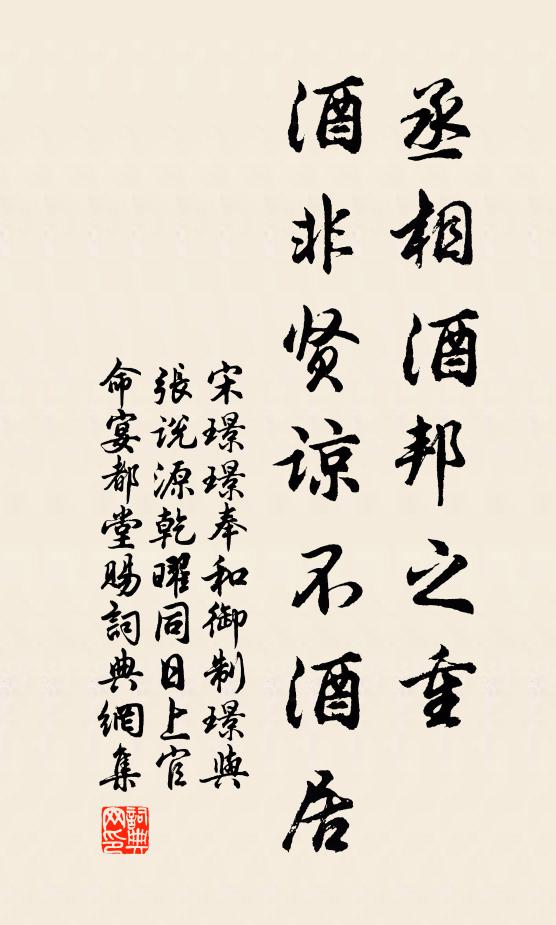 丞相酒邦之重
酒非贤谅不酒居
宋璟璟奉和御制璟與
張说源乾曜同日上官
命宴都堂賜詞典網集
詞典网印